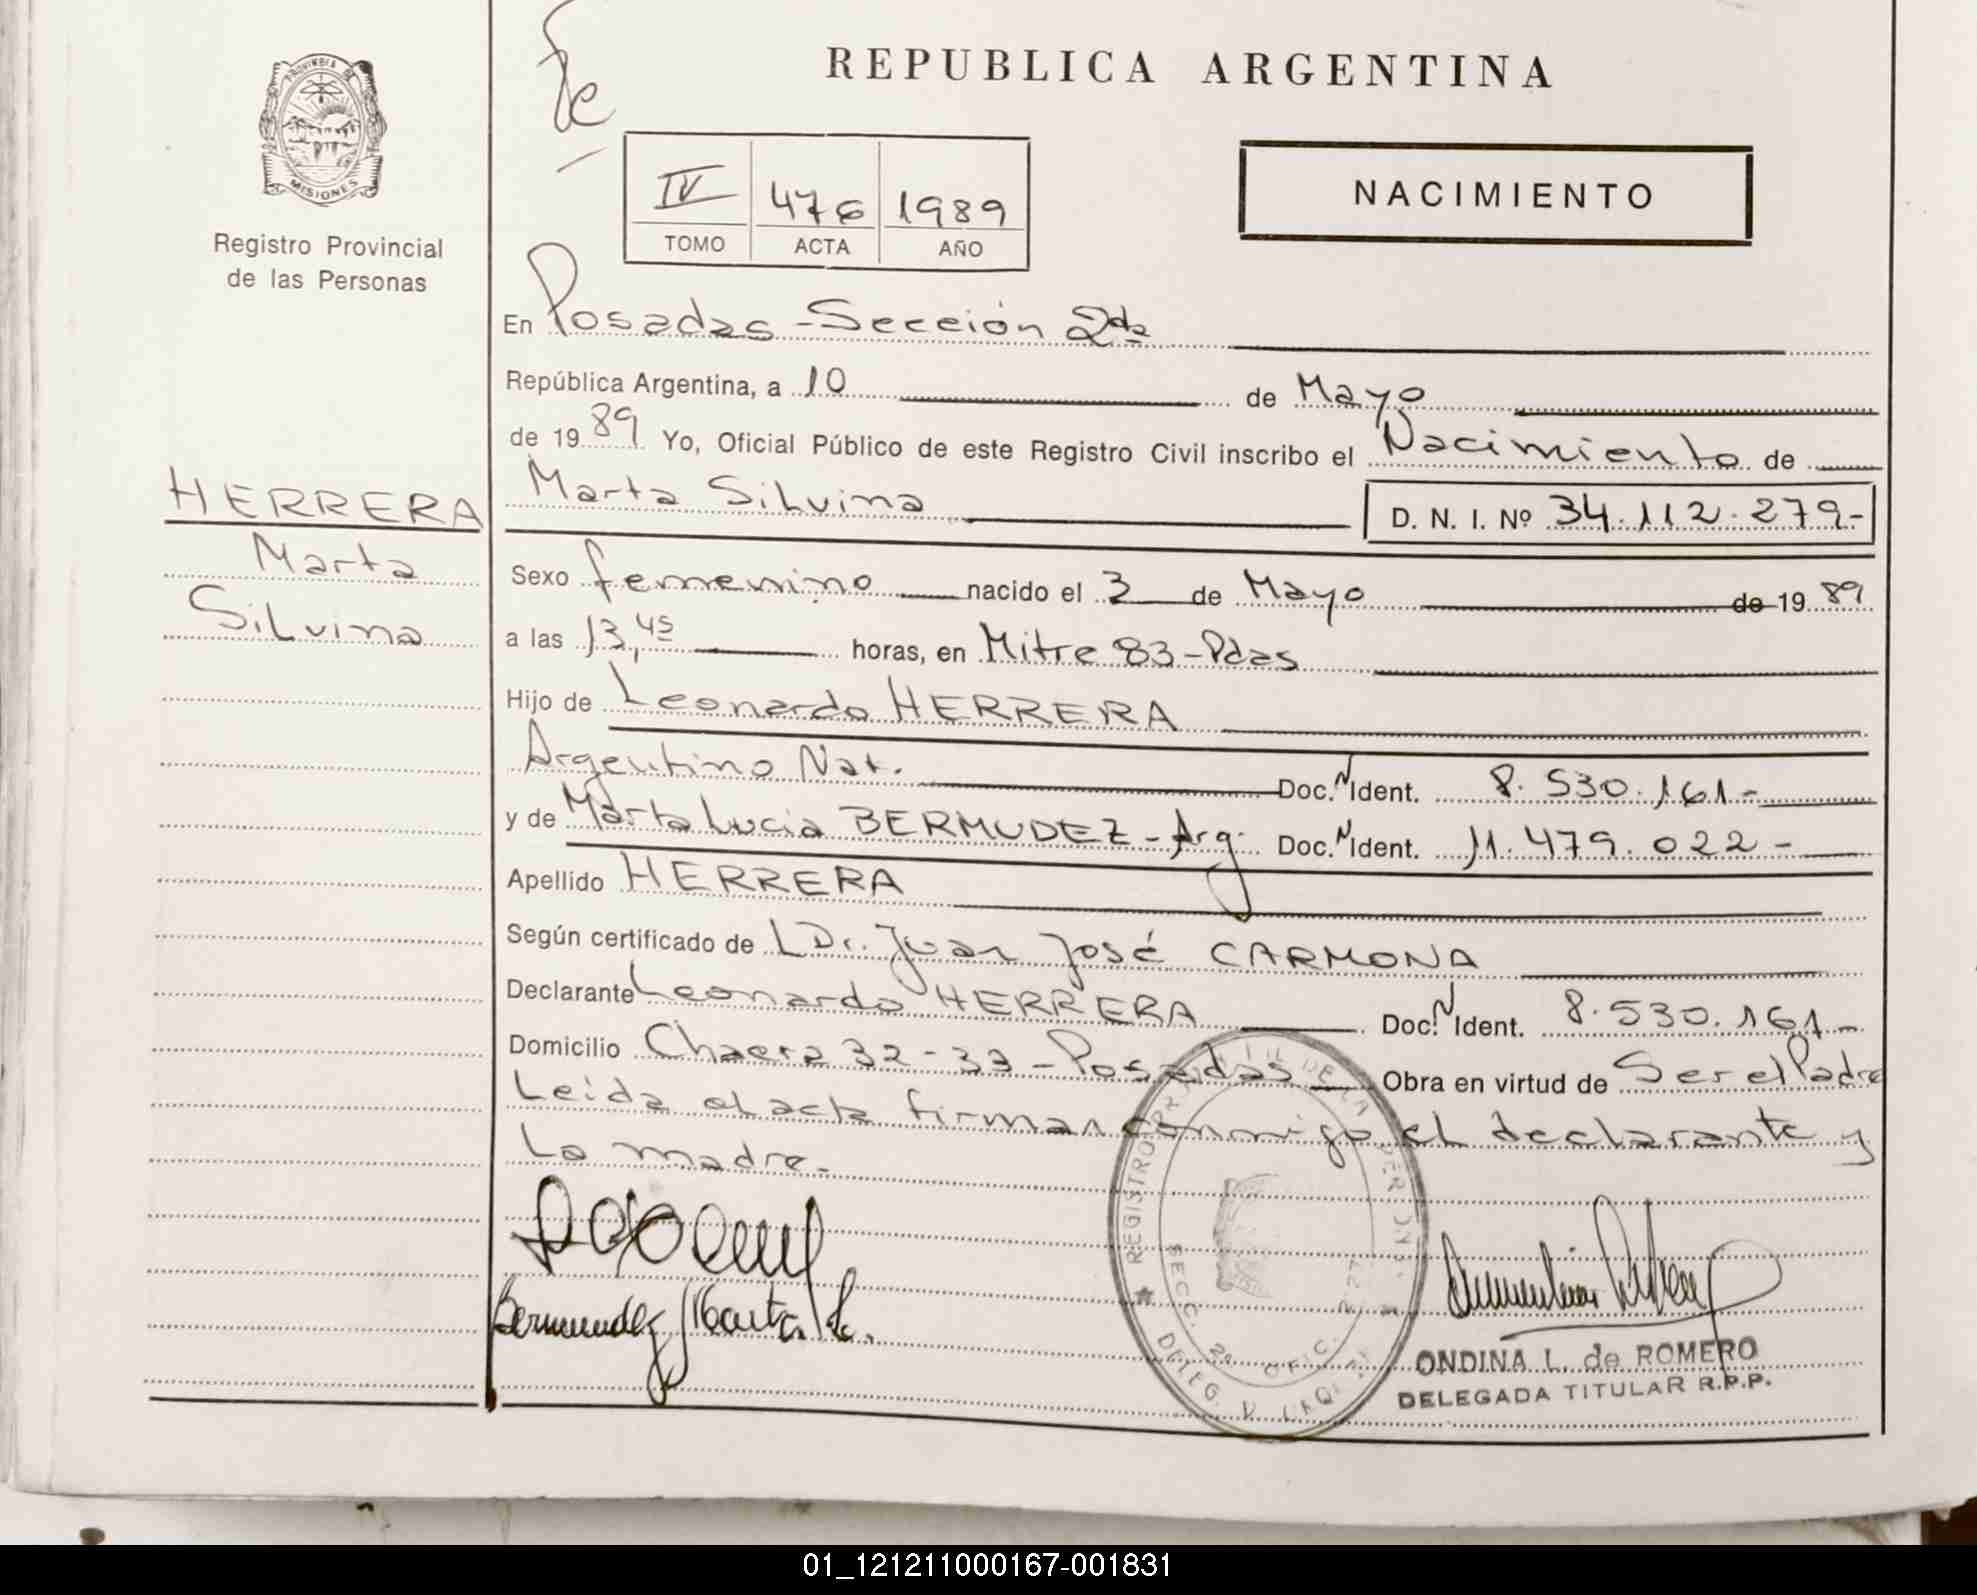 PROVINCIA DE
MISIONES
Registro Provincial
de las Personas
HERRERA
Marta
Silvina
REPUBLICA ARGENTINA
IV 476 1989
TOMO ACTA AÑO
NACIMIENTO
En Posadas - Sección 2da
República Argentina, a 10 de Mayo
de 1989 Yo, Oficial Público de este Registro Civil inscribo el Nacimiento de
Marta Silvina D. N. I. Nº 34.112.279-
Sexo femenino nacido el 3 de Mayo de 1989
a las 13,45 horas, en Mitre 83-Pdas
Hijo de Leonardo HERRERA
Argentino Nat. Doc. N Ident. 8.530.161-
y de Marta Lucia BERMUDEZ - Arg. Doc. N Ident. 11.479.022-
Apellido HERRERA
Según certificado de L Dr. Juan José CARMONA
Declarante Leonardo HERRERA Doc. N Ident. 8.530.161-
Domicilio Chacra 32-33 - Posadas Obra en virtud de Ser el Padre
Leída el acta firman conmigo el declarante y
La madre.-
Bermudez Marta L.
REGISTRO PROVINCIAL DE LAS PERSONAS
SECC. 2ª OFIC.
DELEG.
ONDINA L. de ROMERO
DELEGADA TITULAR R.P.P.
01_121211000167-001831